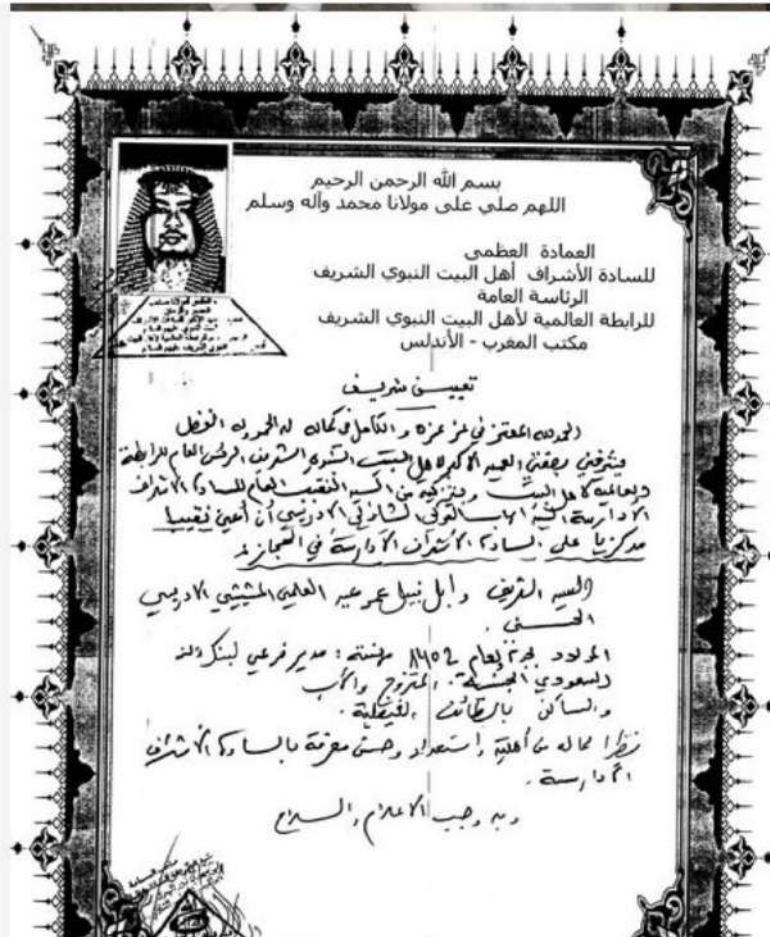 بسم الله الرحمن الرحيم
اللهم صلي على مولانا محمد وآله وسلم
العمادة العظمى
للسادة الأشراف أهل البيت النبوي الشريف
الرئاسة العامة
للرابطة العالمية لأهل البيت النبوي الشريف
مكتب المغرب - الأندلس
تعيين شريف
الحمد لله المعتز في عز عزه و الكامل في كماله له الحمد وله الفضل
يشرفني بصفتي العميد الأكبر لأهل البيت النبوي الشريف الرئيس العام للرابطة
العالمية لأهل البيت وبتزكية من السيد النقيب العام للسادة الأشراف
الأدارسة السيد الشاذلي الادريسي أن أعين نقيبا
مركزيا على السادة الأشراف الأدارسة في الحجاز
السيد الشريف وائل نبيل عمر عبد العلمي المشيشي الادريسي
الحسني .
المولود بجدة عام مهنته : مدير فرعي لبنك
السعودي الجنسية . المتزوج والأب
والساكن بالطائف الفيصلية .
نظرا لماله من أهلية واستعداد وحسن معرفة بالسادة الأشراف
الأدارسة .
وبه وجب الاعلام والسلام